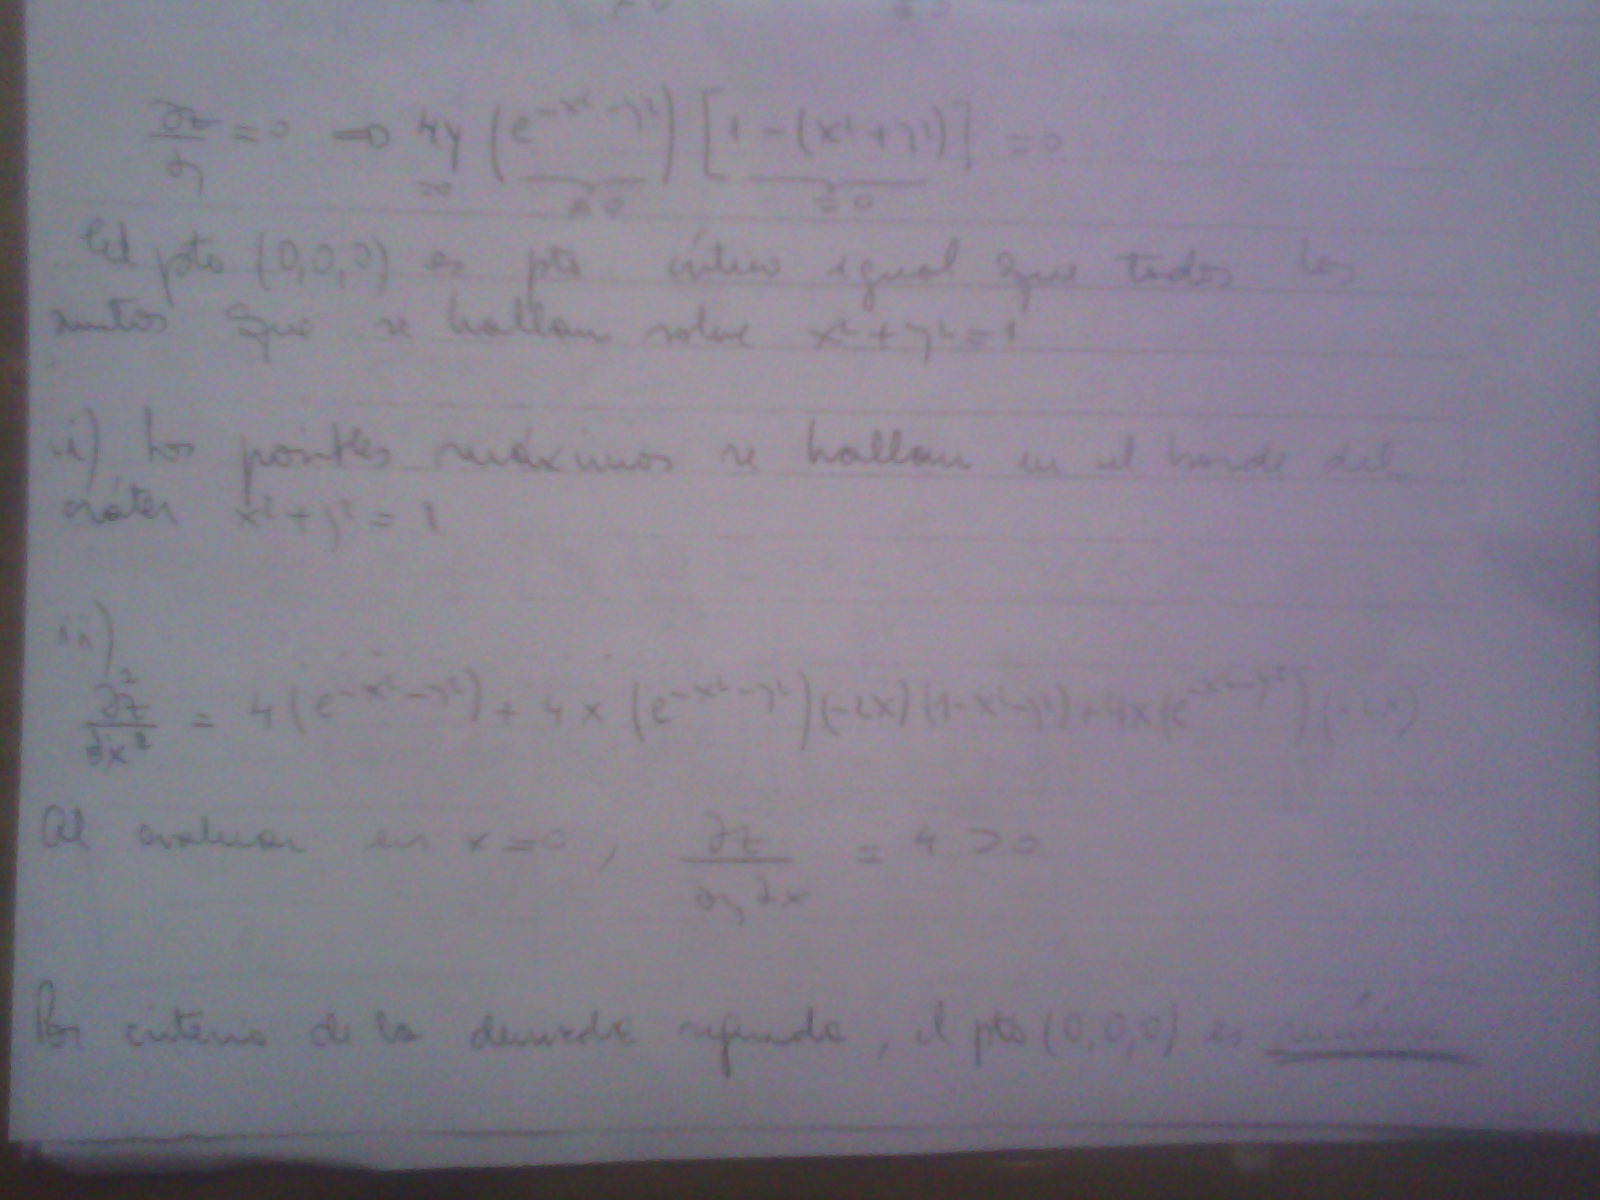 ∂z/∂y = 0 → 4y (e^{-x²-y²}) [1-(x²+y²)] = 0
=0 ≠0 =0
El pto (0,0,0) es pto crítico igual que todos los
puntos que se hallan sobre x²+y²=1
i) Los posibles máximos se hallan en el borde del
cráter x²+y² = 1
ii)
∂²z/∂x² = 4(e^{-x²-y²}) + 4x (e^{-x²-y²})(-2x)(1-x²-y²)+4x(e^{-x²-y²})(-2x)
Al evaluar en x=0, ∂z/∂y∂x = 4 >0
Por criterio de la derivada segunda, el pto (0,0,0) es mínimo